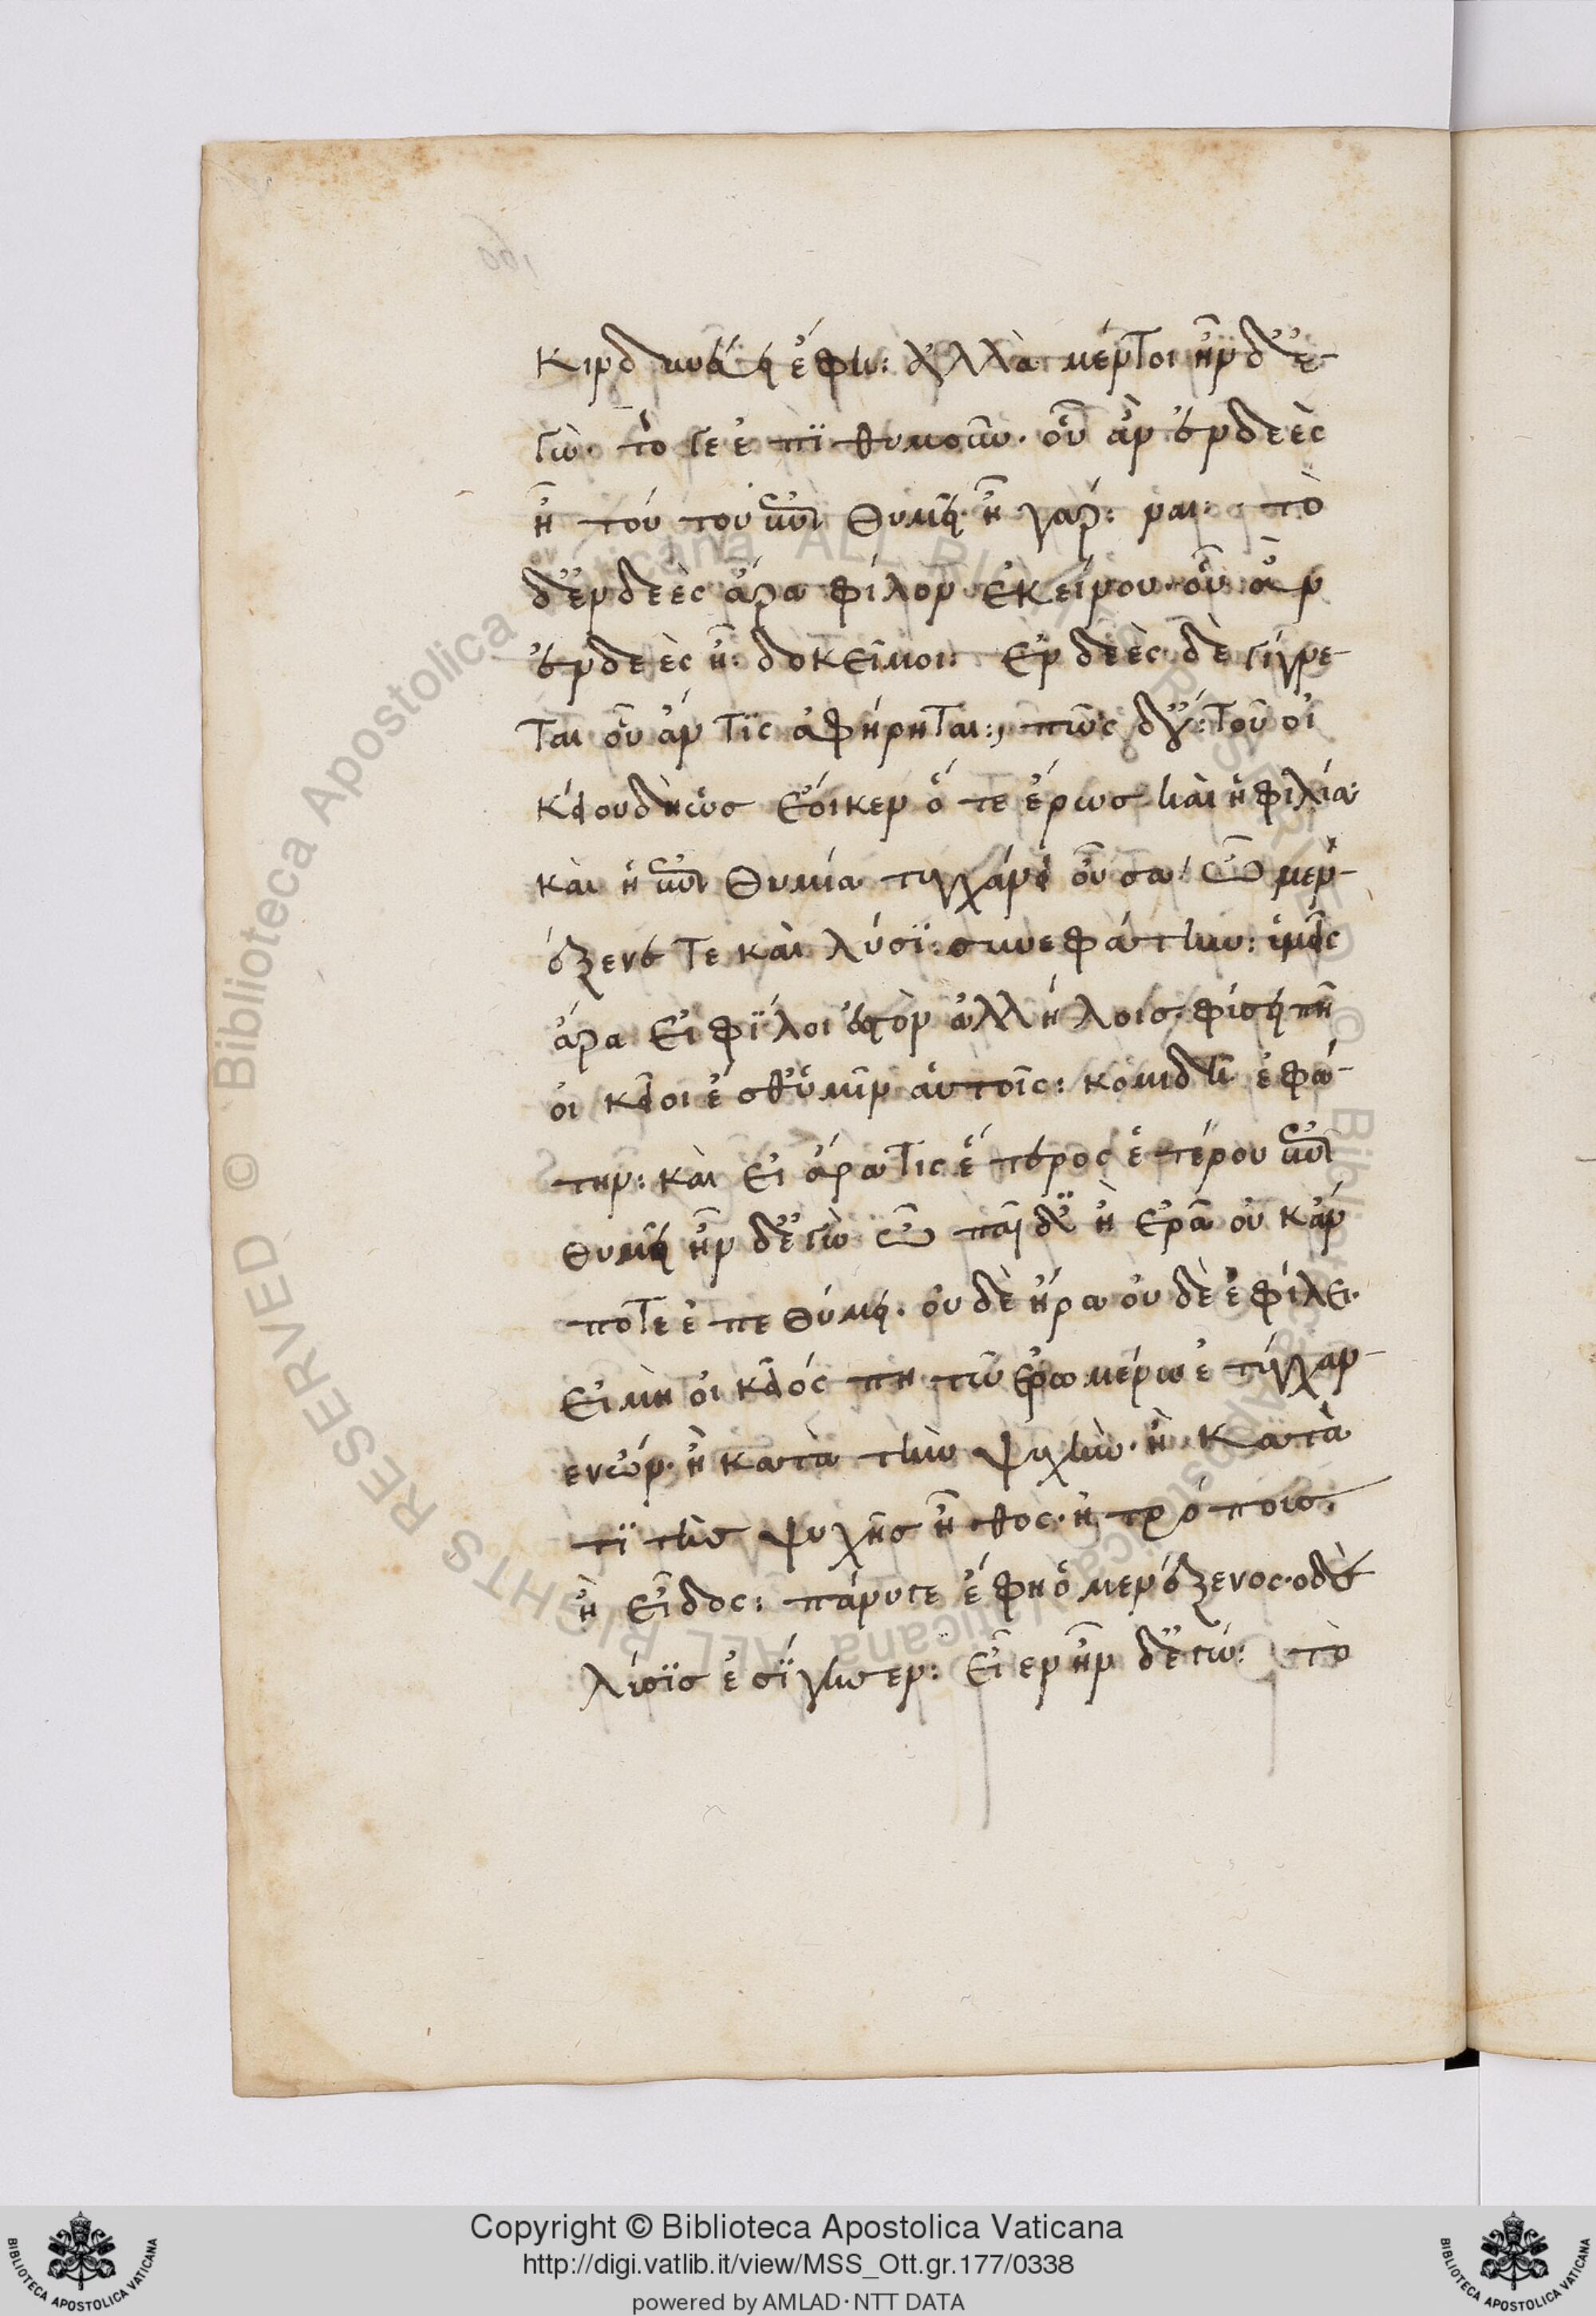 κινδυνεύει ἔφη: ἀλλὰ μέντοι ἦν δ' ἐ-
γώ· τό γε ἐπιθυμοῦν· οὗ ἂν ἐνδεὲς
ἦ τούτου ἐπιθυμεῖ· ἦ γάρ: ναι: τὸ
δ' ἐνδεὲς ἄρα φίλον ἐκείνου· οὗ ἂν
ἐνδεὲς ἦ: δοκεῖ μοι: ἐνδεὲς δὲ γίγνε-
ται οὗ ἄν τις ἀφήρηται: πῶς δ' οὔ: τοῦ οἰ
κείου δὴ ὡς ἔοικεν ὅ τε ἔρως καὶ ἡ φιλία
καὶ ἡ ἐπιθυμία τυγχάνει οὖσα ὦ μεν-
έξενέ τε καὶ λύσι: συνεφάτην: ὑμεῖς
ἄρα εἰ φίλοι ἐστὸν ἀλλήλοις· φύσει πῆ
οἰκεῖοι ἐσθ' ὑμῖν αὐτοῖς: κομιδῆ ἐφά-
την: καὶ εἰ ἄρα τις ἕτερος ἑτέρου ἐπι
θυμεῖ ἦν δ' ἐγώ ὦ παῖδε ἢ ἐρᾶ οὐκ ἄν
ποτε ἐπεθύμει· οὐδὲ ἤρα οὐδὲ ἐφίλει·
εἰ μὴ οἰκεῖός πη τῶ ἐρωμένω ἐτύγχαν-
εν ὤν· ἢ κατὰ τὴν ψυχὴν· ἢ κατὰ
τι τῆς ψυχῆς ἦθος· ἢ τρόποις·
ἢ εἶδος: πάνυ γε ἔφη ὁ μενέξενος· ὁ δὲ
λύσις ἐσίγησεν: εἶεν ἦν δ' ἐγώ: τὸ
Copyright © Biblioteca Apostolica Vaticana
http://digi.vatlib.it/view/MSS_Ott.gr.177/0338
powered by AMLAD·NTT DATA